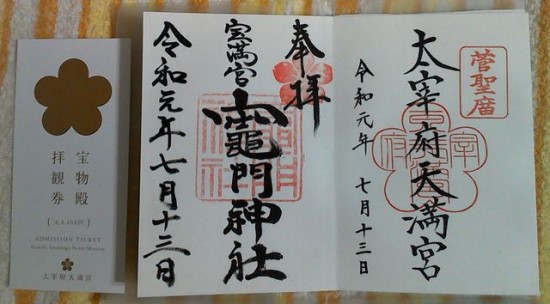 宝物殿
拝観券
ADMISSION TICKET
太宰府天満宮
奉拝
宝満宮
竈門神社
令和元年七月十三日
菅聖庿
太宰府天満宮
令和元年 七月十三日